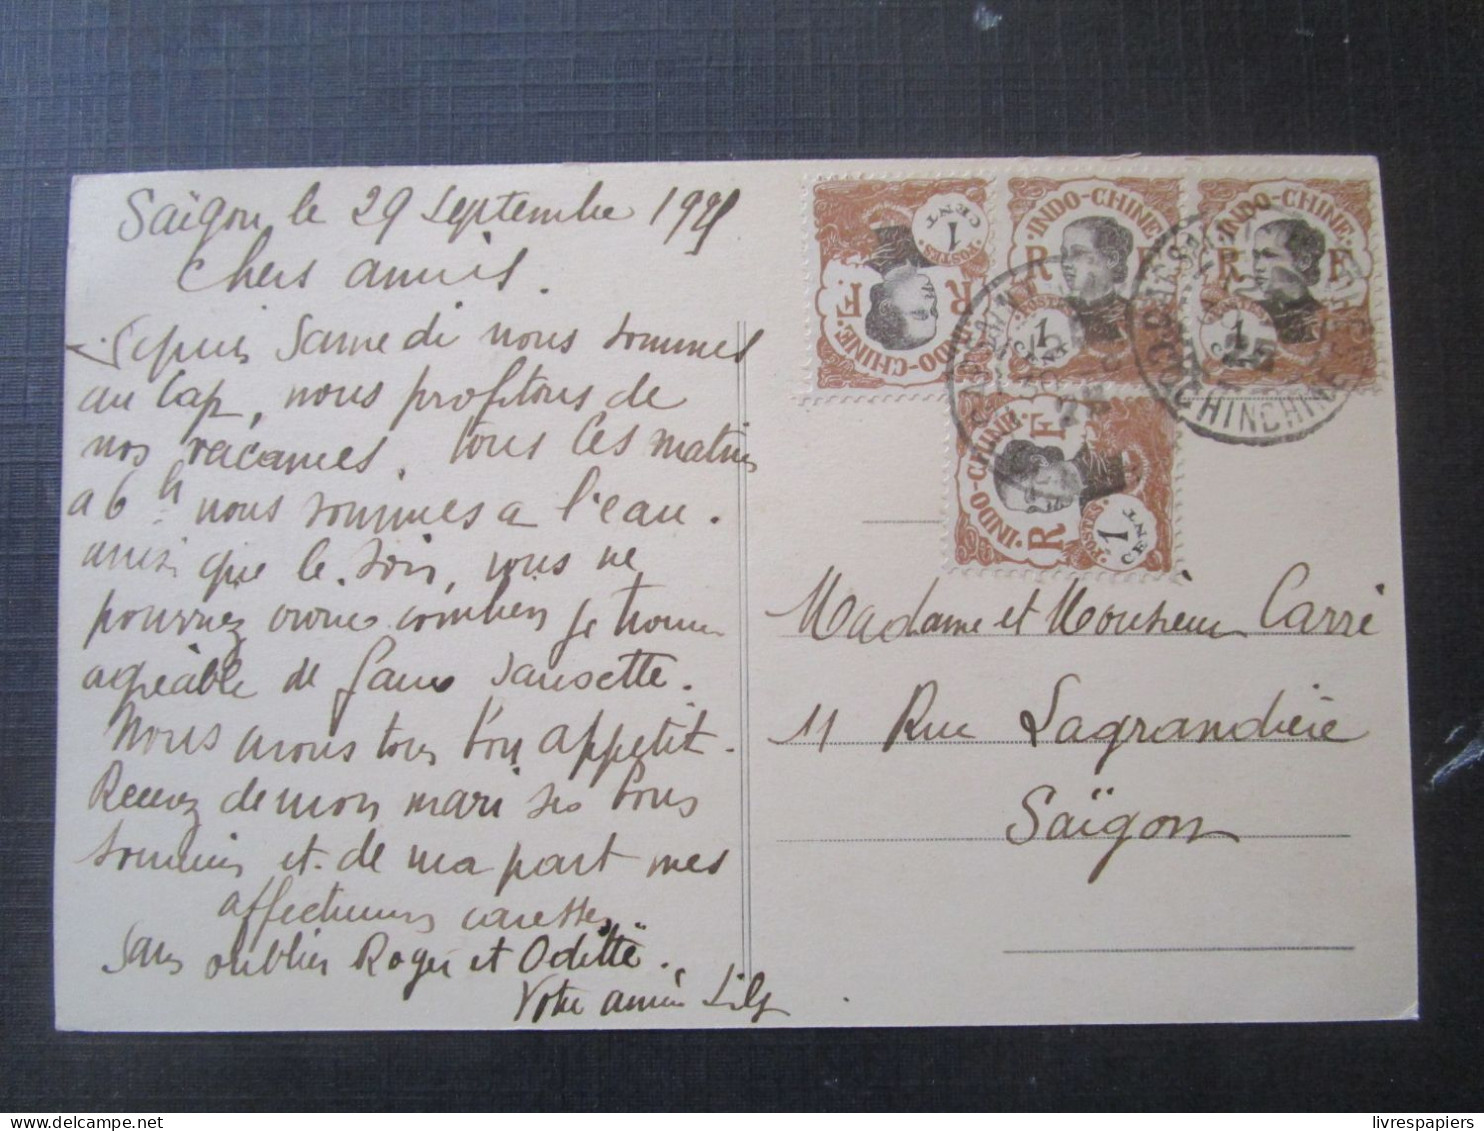 Saïgon le 29 Septembre
Chers amis.
Depuis Samedi nous sommes
au Cap, nous profitons de
nos vacances. tous les matins
a 6 h nous sommes a l'eau.
ainsi que le soir, vous ne
pourrez croire combien je trouve
agréable de faire
Nous avons tous bon appetit.
Recevez de mon mari ses bons
Souvenirs et de ma part mes
affectueuses caresses
Sans oublier Roger et Odette.
Votre amie Lily
INDO-CHINE
R F
POSTES
1
CENT
INDO-CHINE
R F
POSTES
1
CENT
INDO-CHINE
R F
POSTES
1
INDO-CHINE
R F
POSTES
1
CENT
COCHINCHINE
Madame et Monsieur Carré
11 Rue Lagrandière
Saïgon
livrespapiers